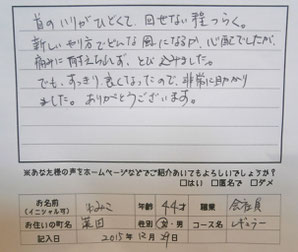 首のハリがひどくて、回せない程つらく。
新しいやり方でどんな風になるか、心配でしたが、
痛みに耐えられず、とび込みました。
でも、すっきり良くなったので、非常に助かり
ました。ありがとうございます。
※あなた様の声をホームページなどでご紹介あいてもよろしいでしょうか?
□はい □匿名で □ダメ
お名前 (イニシャル可) 年齢 44才 職業 会社員
お住いの町名 性別 女・男 コース名 レギュラー
記入日 2015年 12月 29日